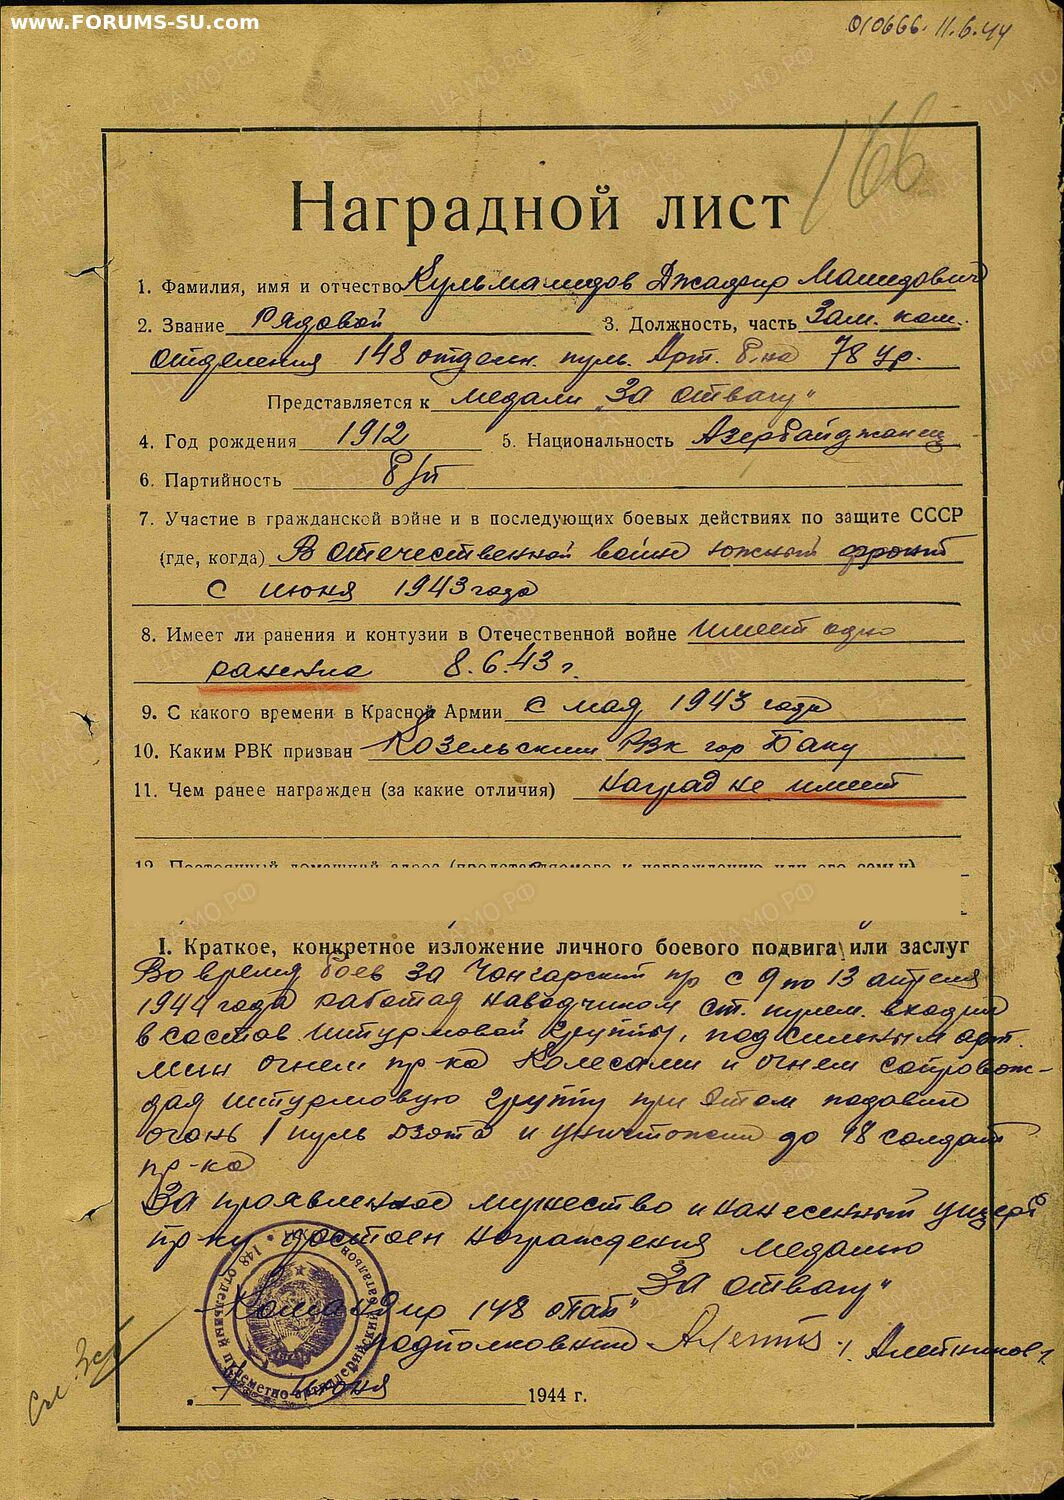 www.FORUMS-SU.com
010666. 11.6.44
166
Наградной лист
1. Фамилия, имя и отчество Кульмамедов Джафир Мамедович
2. Звание Рядовой 3. Должность, часть Зам. ком.
отделения 148 отдельн. пуль. Арт. б-на 78 Ур.
Представляется к медали „За отвагу"
4. Год рождения 1912 5. Национальность Азербайджанец
6. Партийность б/п
7. Участие в гражданской войне и в последующих боевых действиях по защите СССР
(где, когда) В отечественной войне южный фронт
с июня 1943 года
8. Имеет ли ранения и контузии в Отечественной войне имеет одно
ранение 8.6.43 г.
9. С какого времени в Красной Армии с мая 1943 года
10. Каким РВК призван РВК гор Баку
11. Чем ранее награжден (за какие отличия) наград не имеет
12. Постоянный домашний адрес (представляемого к награждению или его семьи)
I. Краткое, конкретное изложение личного боевого подвига или заслуг
Во время боев за Чонгарский п-р с 9 по 13 апреля
1944 года работая наводчиком ст. пулем. входил
в состав штурмовой группы, под сильным арт.
мин огнем пр-ка колесами и огнем сопровож-
дая штурмовую группу при этом подавил
огонь 1 пуль Дзота и уничтожил до 18 солдат
пр-ка
За проявленное мужество и нанесенный ущерб
пр-ку достоен награждения медалью
„За отвагу"
Командир 148 опаб
подполковник Алейников
148 отдельный пулеметно-артиллерийский батальон
7 июня 1944 г.